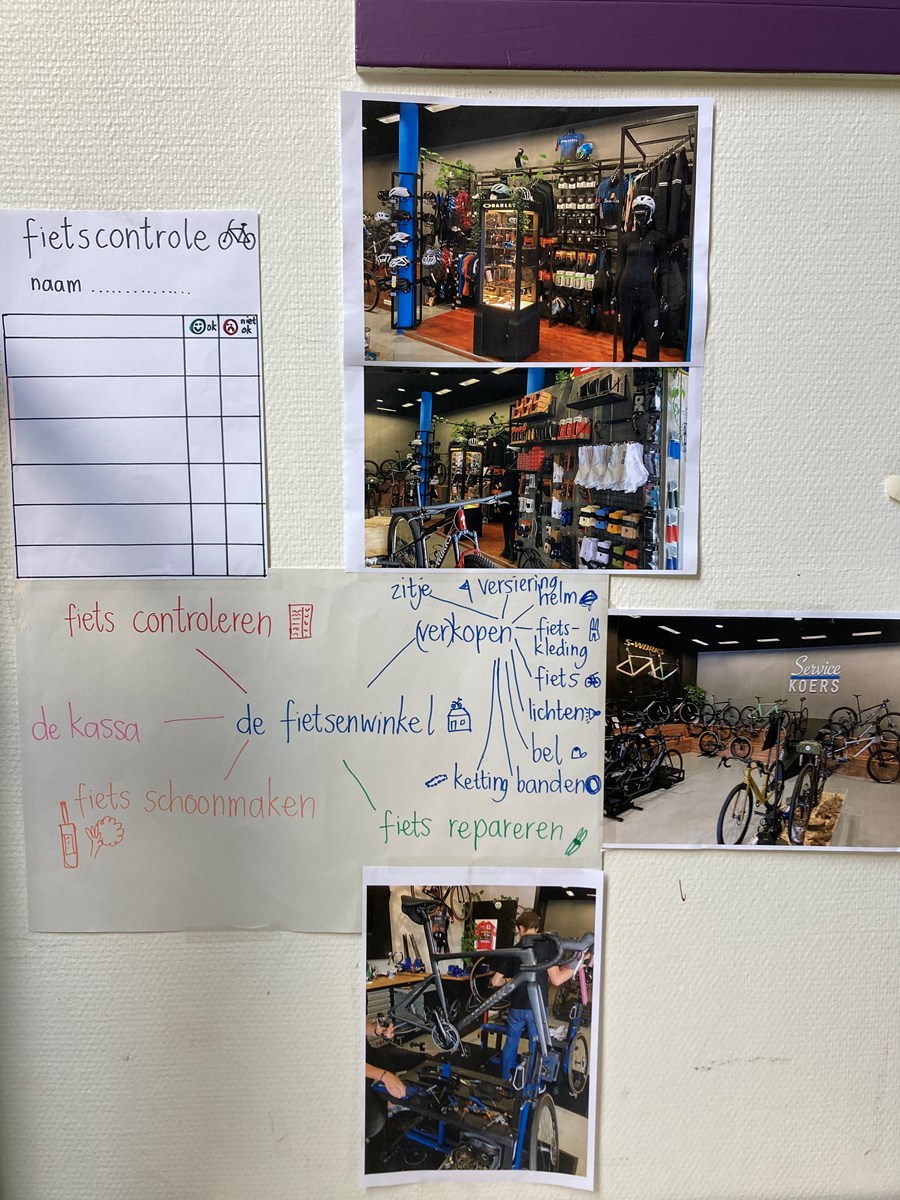 fietscontrole
naam ..............
ok
niet
ok
OAKLEY
S-WORKS
Service
KOERS
fiets controleren
de kassa
de fietsenwinkel
fiets schoonmaken
fiets repareren
(ver)kopen
zitje
versiering
helm
fiets-
kleding
fiets
lichten
bel
banden
ketting